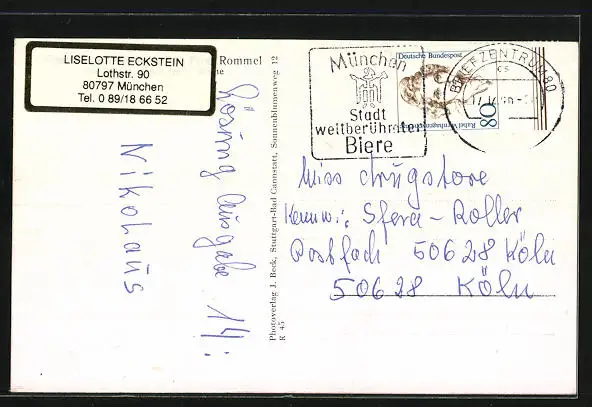 LISELOTTE ECKSTEIN
Lothstr. 90
80797 München
Tel. 0 89/18 66 52
Rommel
Lösung Ausgabe 14:
Nikolaus
Photoverlag J. Beck, Stuttgart-Bad Cannstatt, Sonnenblumenweg 12
R 45
München
Stadt
weltberühmter
Biere
Deutsche Bundespost
80
BRIEFZENTRUM 80
Miss drugstore
Kennw.: Sfera-Roller
Postfach 50628 Köln
50628 Köln